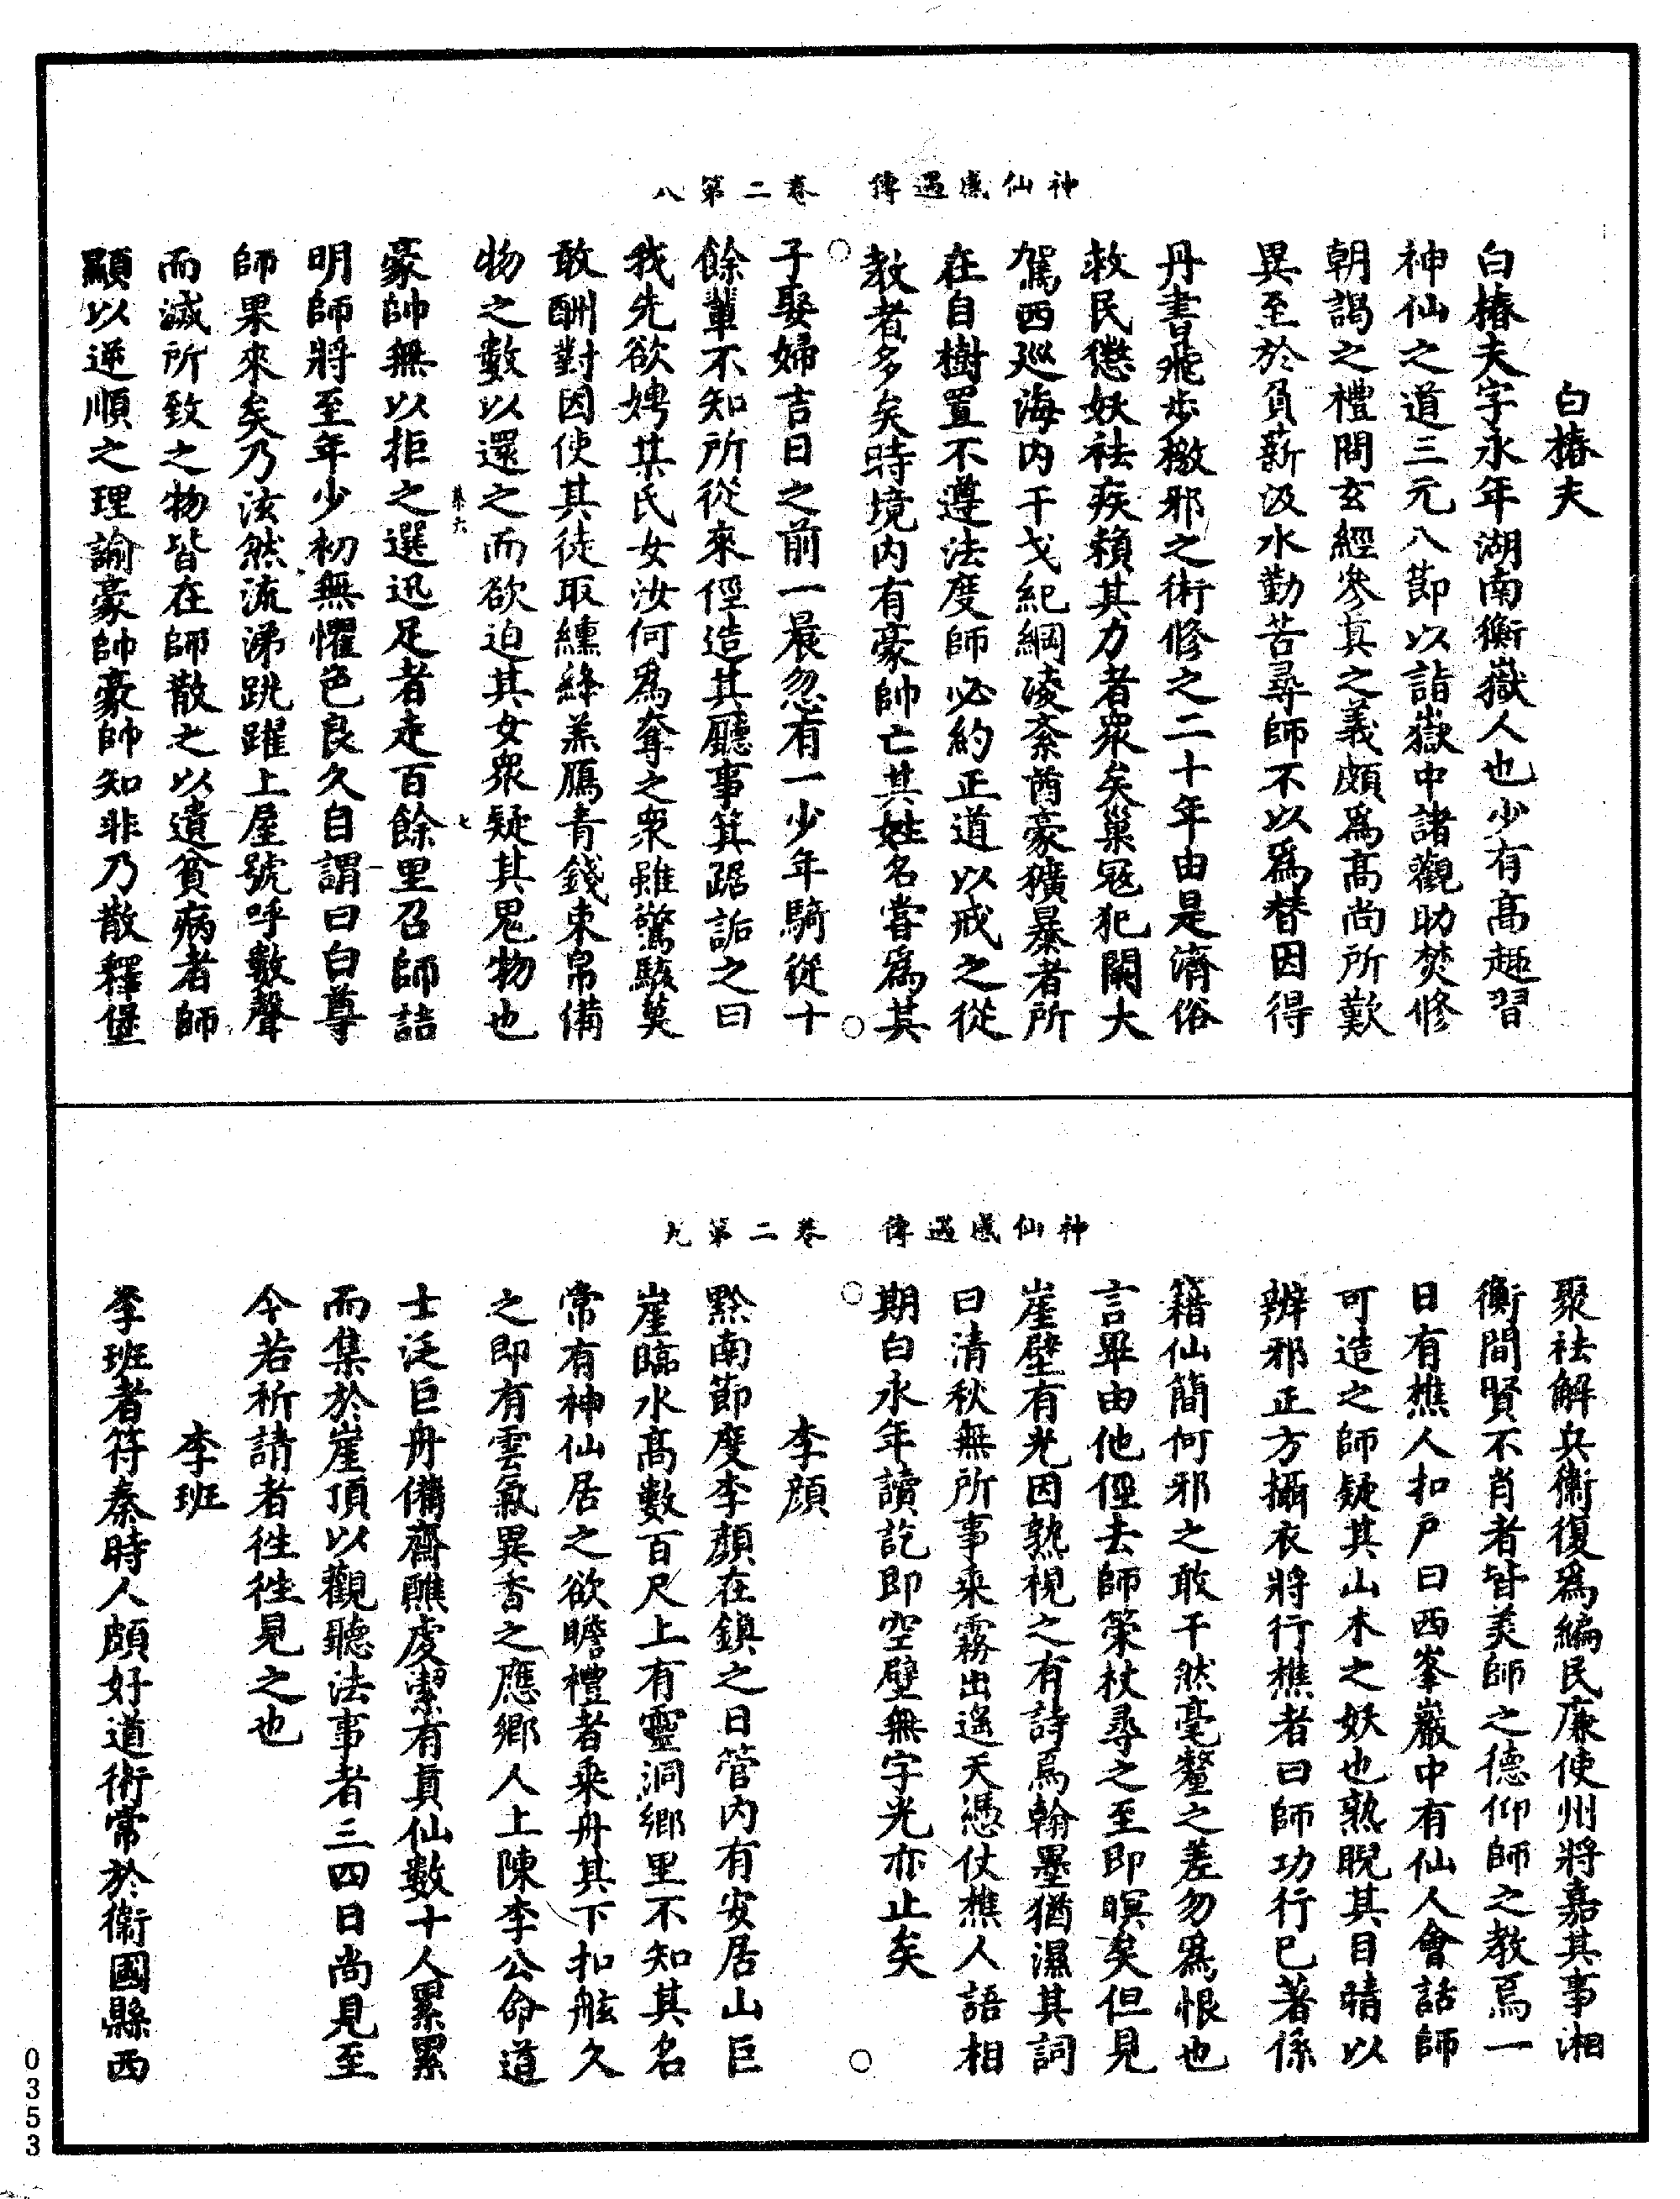 神仙感遇傳　卷二第八
白椿夫
白椿夫字永年湖南衡嶽人也少有高趣習
神仙之道三元八節以詣嶽中諸觀助焚修
朝謁之禮問玄經參真之義頗爲高尚所歎
異至於負薪汲水勤苦尋師不以爲替因得
丹書飛步檄邪之術修之二十年由是濟俗
救民懲妖祛疾賴其力者衆矣巢寇犯闕大
駕西巡海内干戈紀綱淩紊酋豪獷暴者所
在自樹置不遵法度師必約正道以戒之從
教者多矣時境内有豪帥亡其姓名嘗爲其
子娶婦吉日之前一晨忽有一少年騎從十
餘輩不知所從來徑造其廳事箕踞詬之曰
我先欲娉某氏女汝何爲奪之衆雖驚駭莫
敢酬對因使其徒取纁絳羔鴈青錢束帛備
物之數以還之而欲迫其女衆疑其鬼物也
恭六　七
豪帥無以拒之選迅足者走百餘里召師詰
明師將至年少初無懼色良久自謂曰白尊
師果來矣乃泫然流涕跳躍上屋號呼數聲
而滅所致之物皆在師散之以遺貧病者師
顯以逆順之理諭豪帥豪帥知非乃散釋堡
神仙感遇傳　卷二第九
聚祛解兵衛復爲編民廉使州將嘉其事湘
衡間賢不肖者皆美師之德仰師之教焉一
日有樵人扣户曰西峯巖中有仙人會話師
可造之師疑其山木之妖也熟睨其目睛以
辨邪正方攝衣將行樵者曰師功行已著係
籍仙簡何邪之敢干然毫釐之差勿爲恨也
言畢由他徑去師策杖尋之至即暝矣但見
崖壁有光因熟視之有詩焉翰墨猶濕其詞
曰清秋無所事乘霧出遥天憑仗樵人語相
期白永年讀訖即空壁無字光亦止矣
李顔
黔南節度李顔在鎮之日管内有安居山巨
崖臨水高數百尺上有靈洞鄉里不知其名
常有神仙居之欲瞻禮者乘舟其下扣舷久
之即有雲氣異香之應鄉人上陳李公命道
士泛巨舟備齋醮虔潔有真仙數十人累累
而集於崖頂以觀聽法事者三四日尚見至
今若祈請者往往見之也
李班
李班者符秦時人頗好道術常於衛國縣西
0353